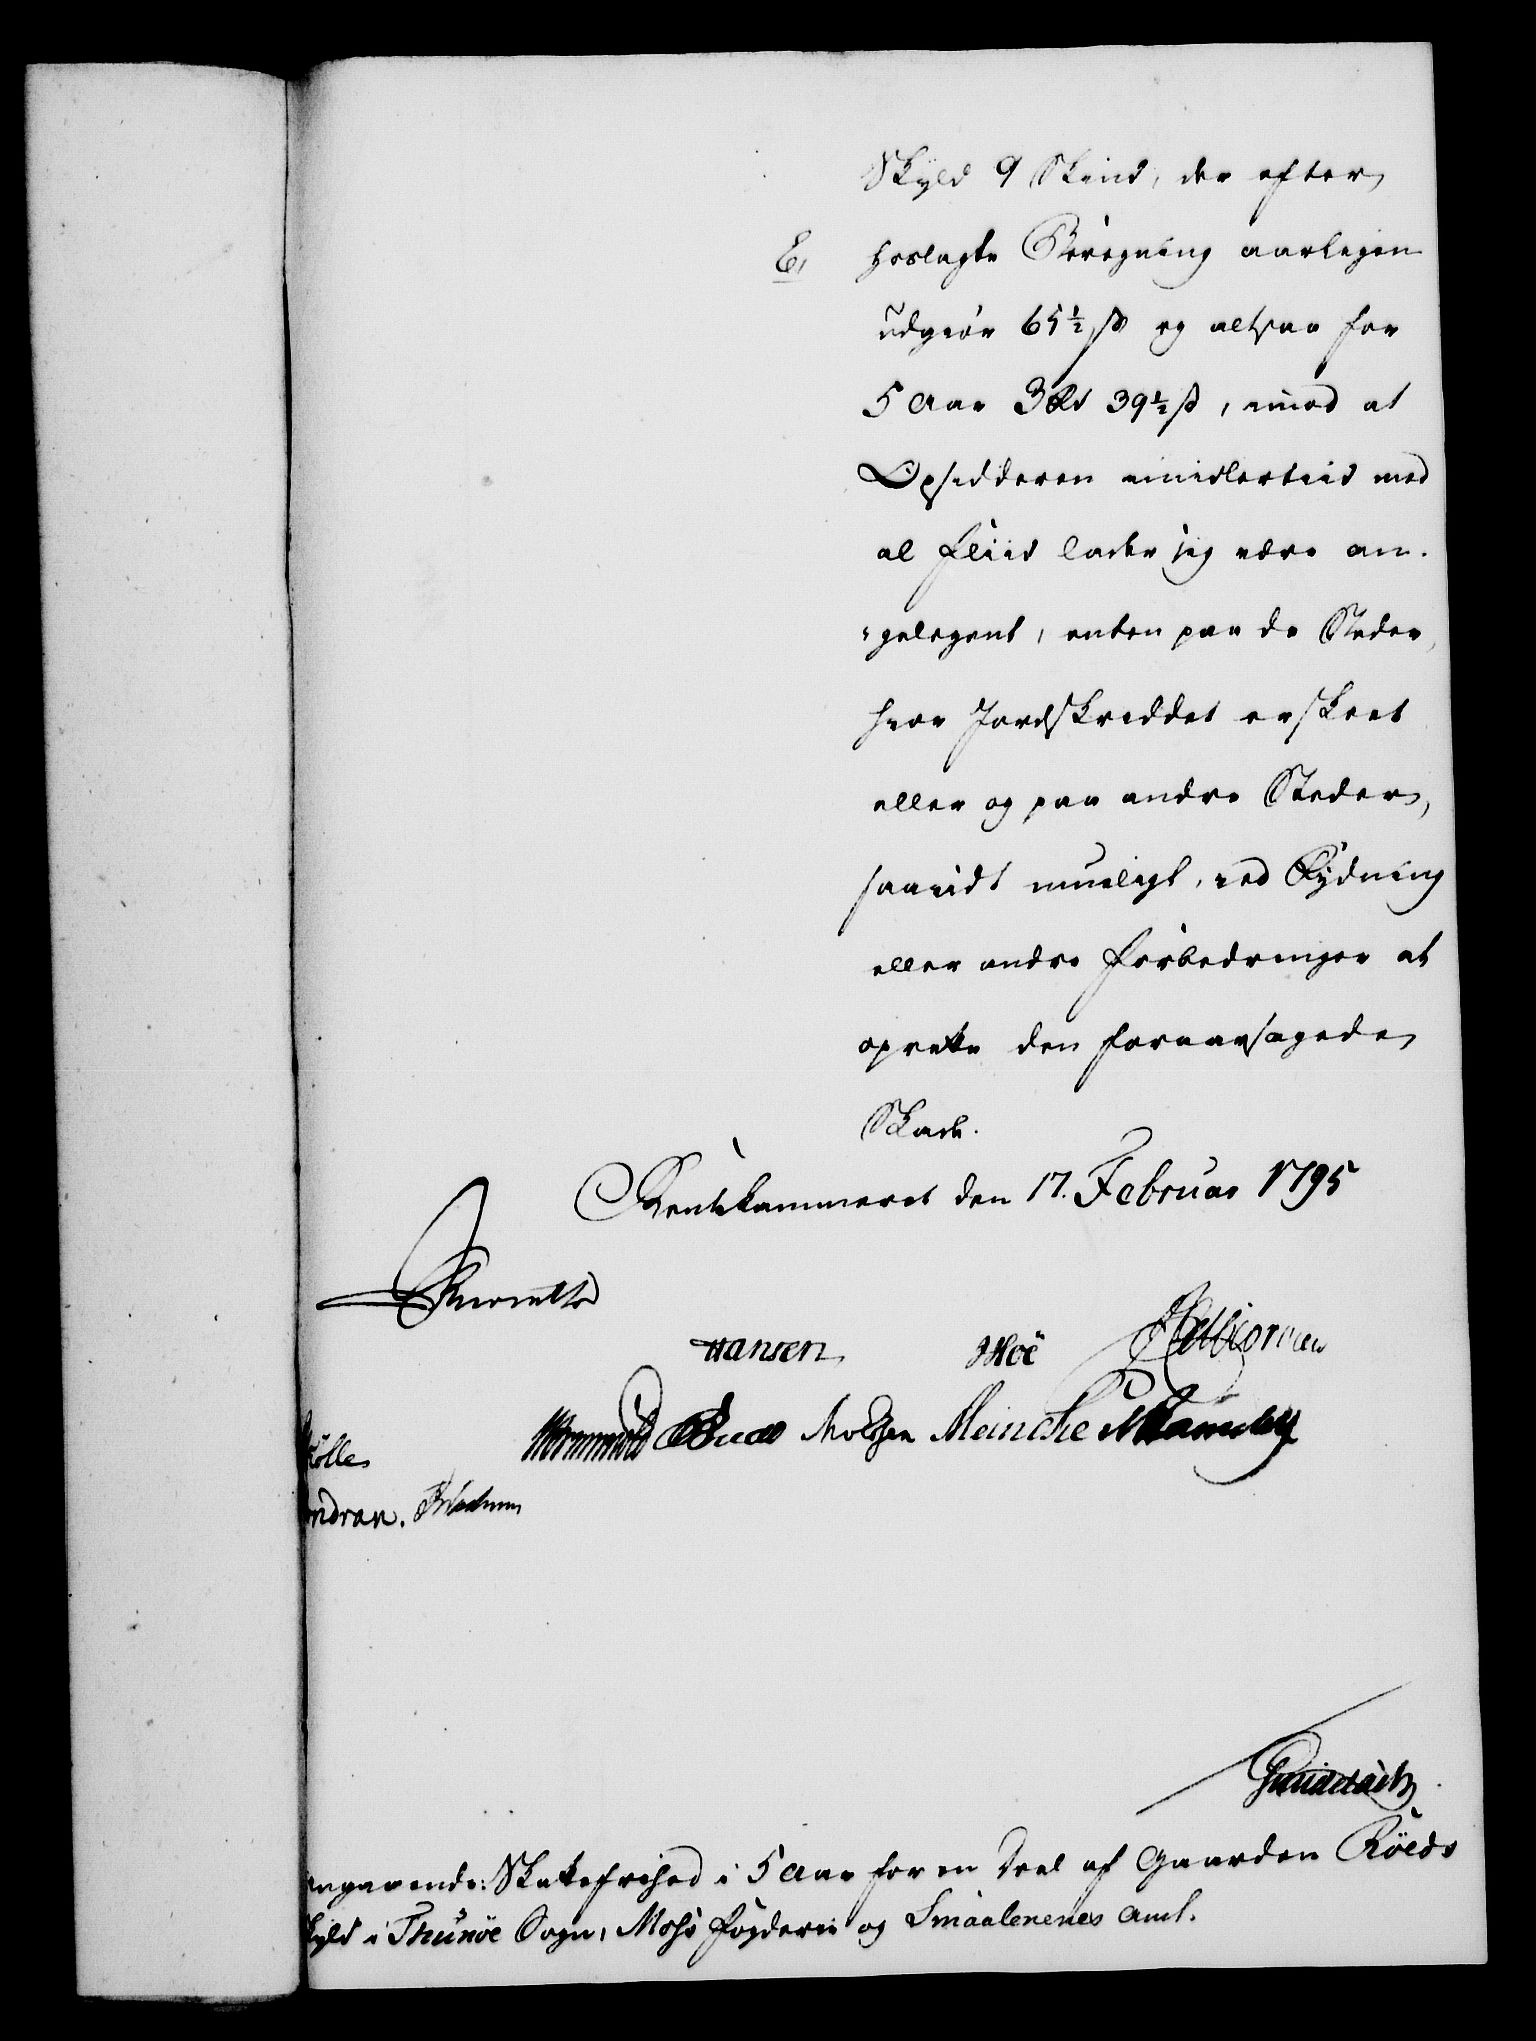 Skyld 9 Skind, der efter
E, hoslagte Beregning aarligen
udgiør 65½ ß og altsaa for
5 Aar 3 Rd 39½ ß, imod at
Opsidderen imidlertiid med
al Fliid lader sig være an-
gelegent, enten paa de Steder,
hvor Jordskreddet er skeet
eller og paa andre Steder,
saavidt mueligt, ved Rydning
eller andre Forbedringer at
oprette den foraarsagede
Skade.
Rentekammeret den 17. Februar 1795
Hansen Moë
Wormskiold Meincke
Angaaende: Skattefrihed i 5 Aar for en Deel af Gaarden Röeds
Skyld i Thunöe Sogn, Moss Fogderie og Smaalenenes Amt.